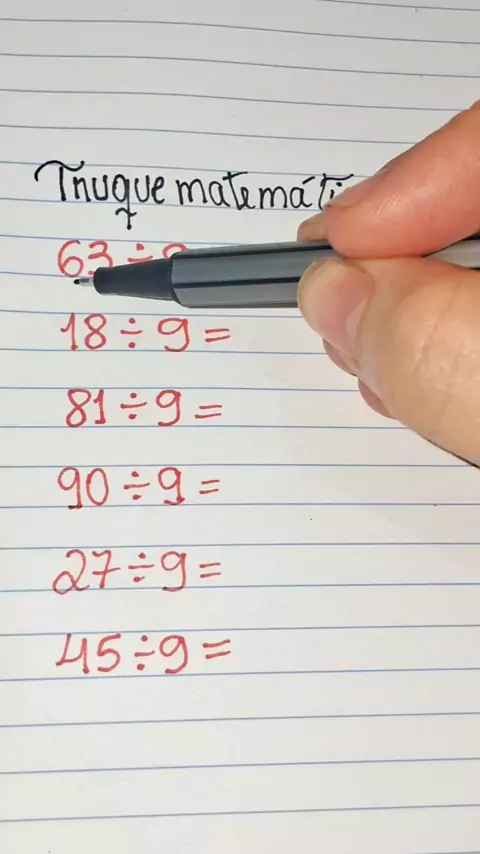 Truque matemáti
63 ÷
18 ÷ 9 =
81 ÷ 9 =
90 ÷ 9 =
27 ÷ 9 =
45 ÷ 9 =